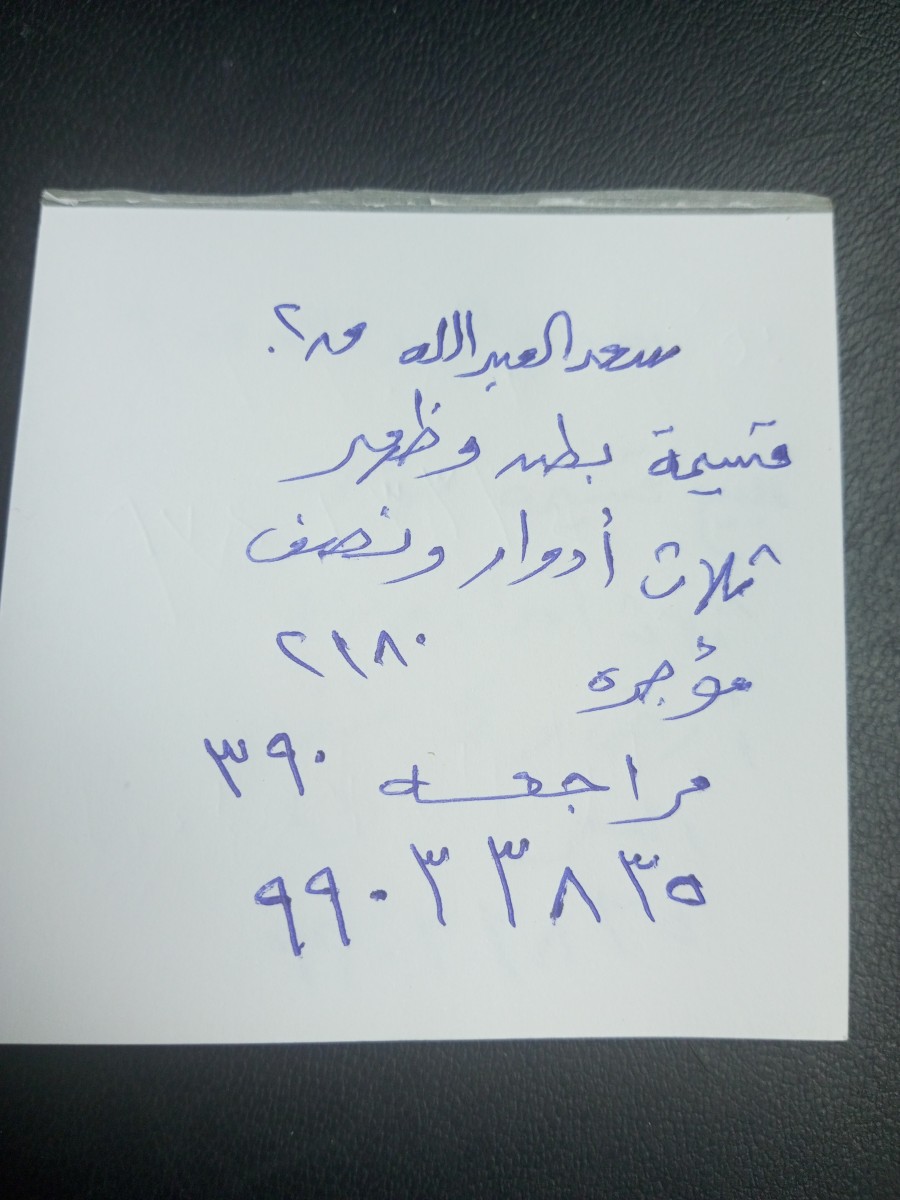 سعد العبدالله ق٢
قسيمة بطن وظهر
ثلاث أدوار ونصف
مؤجره ٢١٨٠
مراجعه ٣٩٠
٩٩٠٣٣٨٣٥